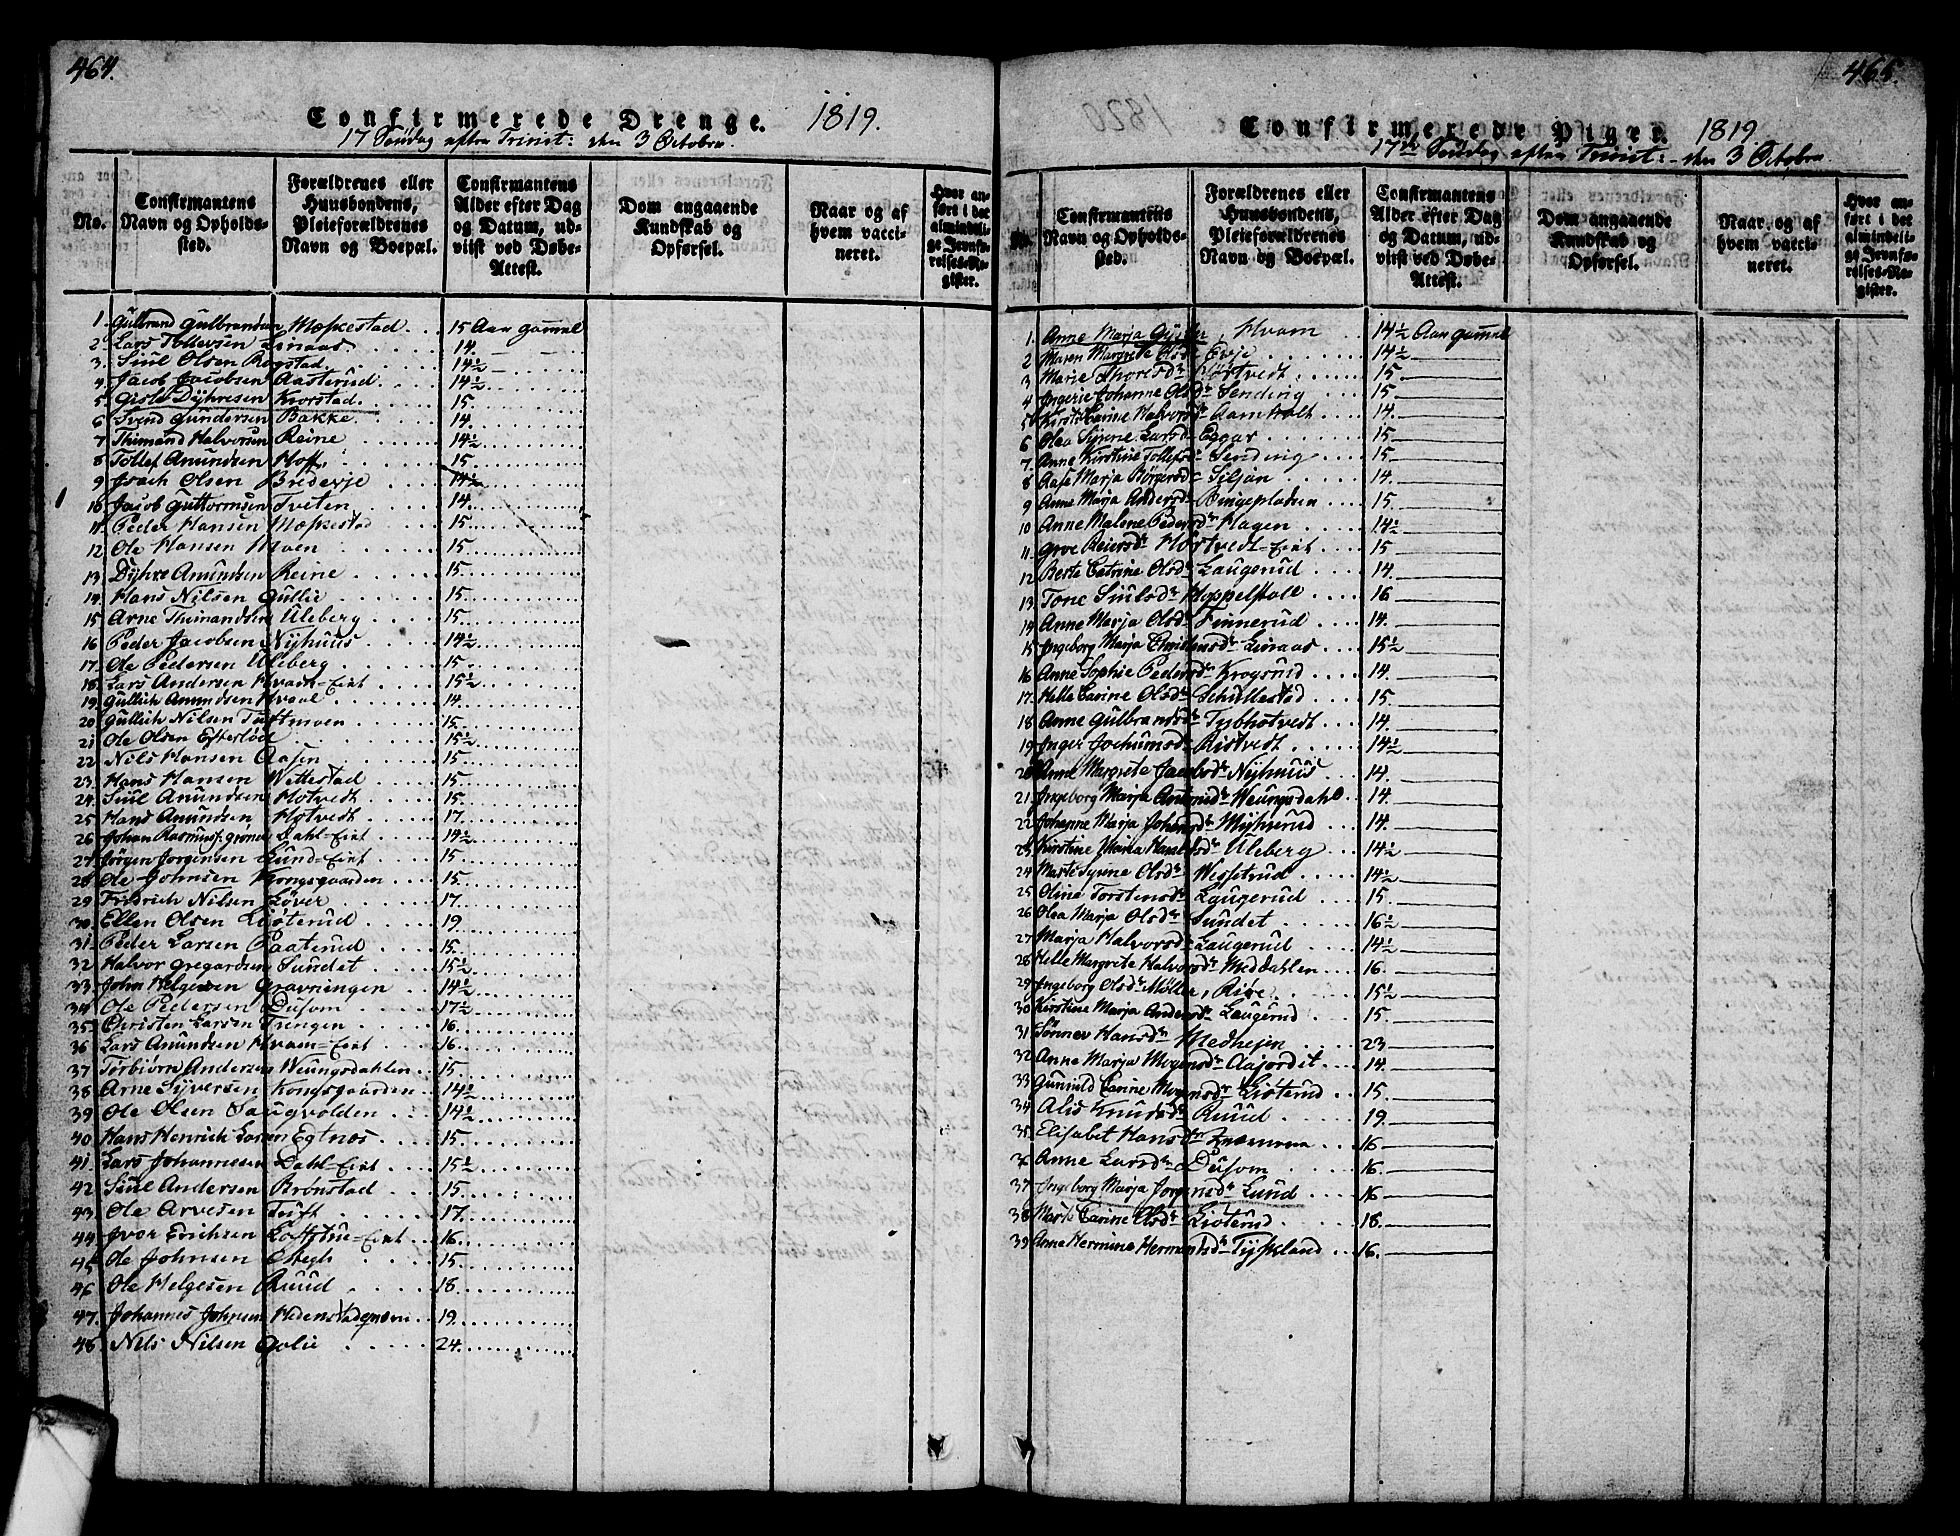 464.
Confirmerede Drenge. 1819.
17 Søndag efter Trinit: den 3 Octobr.
No.
Confirmantens Navn og Opholds-sted.
Forældrenes eller Huusbondens, Pleieforældrenes Navn og Boepæl.
Confirmantens Alder efter Dag og Datum, ud-viist ved Døbe-Attest.
Dom angaaende Kundskab og Opførsel.
Naar og af hvem vacci-neret.
Hvor an-ført i det almindeli-ge Jevnfø-relses-Re-gister.
1. Gulbrand Gulbrandsen Mæhestad. 15 Aar gammel
2 Lars Tollevsen Linaas. 14.
3. Siul Olsen Bogstad. 14½
4. Jacob Jacobsen Aasterud. 14½
5. Gisle Dyhresen Korstad. 15.
6 Svend Gundersen Bakke. 14.
7 Thimand Halvorsen Reine 14½
8 Tollef Amundsen Hoff. 15.
9 Joach Olsen Bredevje 14½
10 Jacob Guttormsen Tveten 14.
11. Peder Hansen Mæhestad 15.
12 Ole Hansen Moen 15.
13. Dyhre Amundsen Reine 15.
14. Hans Nilsen Gullie 15.
15 Arne Thimandsen Uleberg 15.
16 Peder Jacobsen Nyhuus 14½
17. Ole Pedersen Uleberg 15.
18. Lars Andersen Hvam-Eiet 15½
19. Gullich Amundsen Hvaal 14.
20 Gullich Nilsen Tuftmoen 15.
21 Ole Olsen Efterlød 15½
22 Nils Hansen Aasen 15.
23. Hans Hansen Wettestad 15.
24. Siul Amundsen Hotvedt 15.
25 Hans Amundsen Hotvedt. 17.
26 Johan Rasmus Dahl-Eiet 14½
27. Jørgen Jorgensen Lund-Eiet 15.
28 Ole Johnsen Kongsgaarden 15.
29 Fridrich Nilsen Løver 17.
30. Ellen Olsen Liøterud 19.
31. Peder Larsen Paaterud 15.
32 Halvor Gregardsen Sundet 15½
33. John Helgesen Gravningen 14½
34 Ole Pedersen Dusom 17½
35. Christen Larsen Trengen 16.
36 Lars Amundsen Hvam-Eiet 16.
37 Torbiørn Andersen Weungsdahlen 15.
38. Arne Syversen Kongsgaarden 14½
39. Ole Olsen Saugvolden 14½
40 Hans Henrich Larsen Egtnæs 15.
41. Lars Johannesen Dahl-Eiet 15½
42. Siul Andersen Brønstad 15.
43. Ole Arvesen Tuft 17.
44 Jvor Erichsen Loftstue-Eiet 16.
45 Ole Johnsen Stegh 15.
46 Ole Helgesen Ruud 18.
47. Johannes Johnsen 19.
48. Nils Nilsen Golie 24.
465.
Confirmerede Piger. 1819.
17de Søndag efter Trinit: den 3 Octobr
No.
Confirmantens Navn og Opholds-sted.
Forældrenes eller Huusbondens, Pleieforældrenes Navn og Boepæl.
Confirmantens Alder efter Dag og Datum, ud-viist ved Døbe-Attest.
Dom angaaende Kundskab og Opførsel.
Naar og af hvem vacci-neret.
Hvor an-ført i det almindeli-ge Jevnfø-relses-Re-gister.
1. Anne Marja Hvam 14½ Aar gammel
2 Maren Margrete Olsdr Evje 14½
3 Marie Thorsdr Hørtvedt 15.
4 Ingerie Johanne Olsdr Sending 15.
5 Kirsti Carine Halvorsdr Aamholt 14.
6 Olea Syrene Larsdr Eggar 15.
7. Anne Kirstine Tollefsdr Sending 15.
8 Aase Marja Børgersdr Siljan 14.
9 Anne Marja Andersdr Bingepladsen 15.
10 Anne Malene Pedersdr Hagen 14½
11. Groe Reiersdr Hørtvedt-Eiet 15.
12 Berte Catrine Olsdr Laugerud 14.
13. Tone Siulsdr Hoppelstole 16
14 Anne Marja Olsdr Finnerud 14.
15 Ingeborg Marja Christensdr Linaas 15½
16 Anne Sophie Pedersdr Krogsrud 14.
17. Helle Carine Olsdr Schullestad 15.
18 Anne Gulbransdr Tybhotvedt 14.
19 Inger Jochumsdr Ristvedt 14½
20 Anne Margrete Jacobsdr Nyhuus 14.
21. Ingeborg Marja Weungsdahl 14.
22 Johanne Marja Johansdr Myhrerud 14.
23. Kirstine Maria Haralsdr Uleberg 14½
24 Marte Synne Olsdr Wesstrud 14½
25 Oline Torstensdr Laugerud 15.
26 Olea Marja Olsdr Sundet 16½
27. Marja Halvorsdr Laugerud 14½
28 Helle Margrete Halvorsdr Meddahlen 16.
29 Ingeborg Olsdr Møller, Riise 15½
30 Kirstine Marja Andersdr Laugerud 15.
31 Sønnev Hansdr Medhejen 23
32 Anne Marja Mogensdr Aajordet 14.
33 Gunnild Carine Mognsdr Liøterud 15.
34 Alis Knudsdr Ruud 19.
35. Elisabet Hansdr 16
36 Anne Larsdr Dusom 16.
37. Ingeborg Marja Jorgensdr Lund 16
38 Marte Carine Olsdr Liøterud 18.
39. Anne Hermine Hermansdr Tyskland 16.